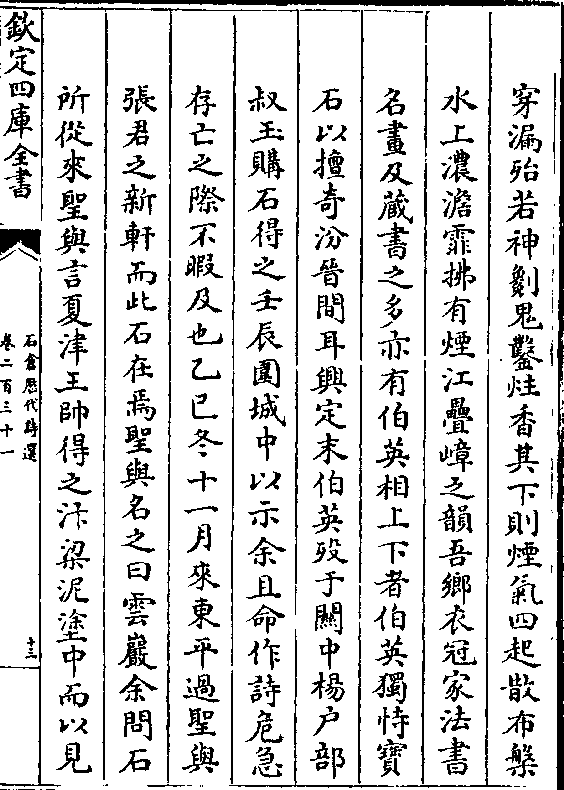 穿漏殆若神劖鬼鑿炷香其下則煙氣四起散布槃
水上濃澹霏拂有煙江疊嶂之韻吾鄉衣冠家法書
名畫及藏書之多亦有伯英相上下者伯英獨恃寶
石以擅奇汾晉間耳興定末伯英歿于關中楊户部
叔玉購石得之壬辰圍城中以示余且命作詩危急
存亡之際不暇及也乙巳冬十一月來東平過聖與
張君之新軒而此石在焉聖與名之曰雲巖余問石
所從來聖與言夏津王帥得之汴梁泥塗中而以見
欽定四庫全書
石倉歷代詩選
卷二百三十一
十三